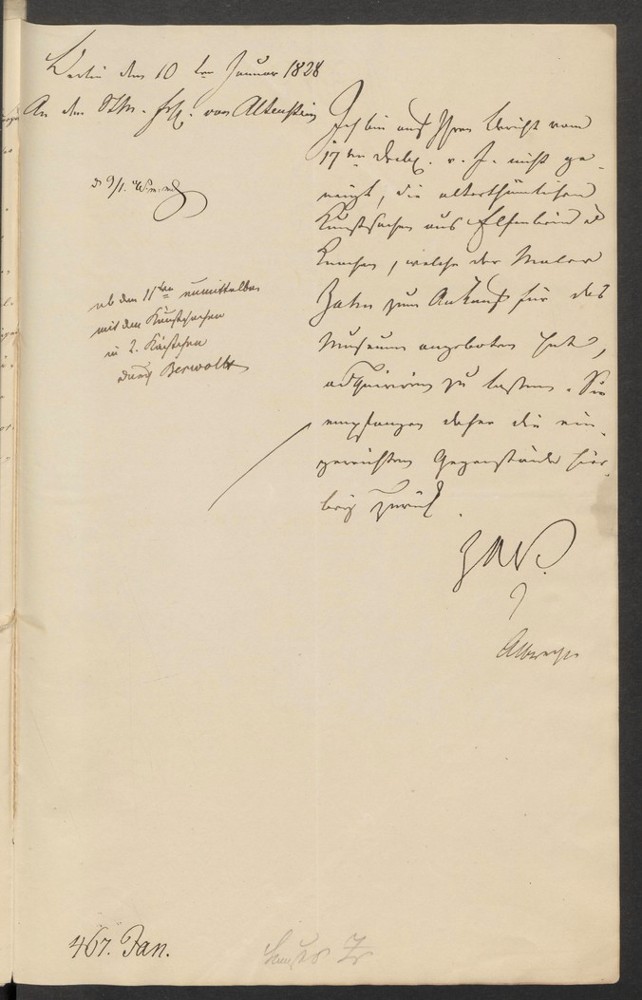 Berlin den 10 ten Januar 1828
An den StM. Frh. von Altenstein
Ich bin auf Ihren Bericht vom
17ten Decbr. v. J. nicht ge-
neigt, die alterthümlichen
Kunstsachen aus Elfenbein
Knochen, welche der Maler
Zahn zum Ankauf für das
Museum angeboten hat,
acquiriren zu lassen. Sie
empfangen daher die ein-
gereichten Gegenstände hier-
bei zurück.
Albrecht
d 9/1.
ab den 11ten unmittelbar
mit den Kunstsachen
in 2. Kästchen
durch Berwoldt
467. Jan.